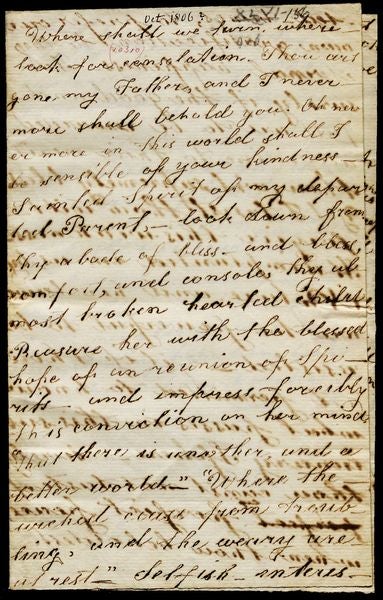 Oct 1806?
XLVI-136
Where shall we turn, where
(20310)
look for consolation. Thou art
gone, my Father, and I never
more shall behold you. Oh nev
er more in this world shall I
be sensible of your kindness –
Sainted Spirit of my depar
ted Parent, – look down from
thy abode of bliss – and bless,
comfort, and console, thy al
most broken hearted child
Reassure her with the blessed
hope of a reunion of Spi
rits – and impress forcibly
this conviction on her mind
"That there is another, and a
better world –" "Where the
wicked cease from troub
ling, and the weary are
at rest –" Selfish – interes-